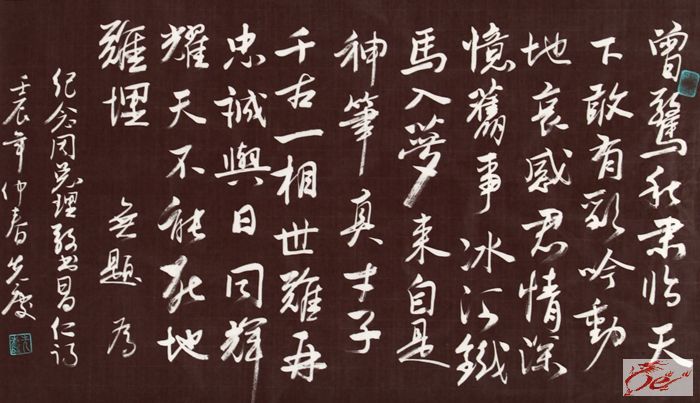 曾驚秋肅臨天
下敢有歌吟動
地哀感君情深
憶舊事冰河鐵
馬入夢來自是
神筆真才子
千古一相世難再
忠誠與日同輝
耀天不能死地
難埋 無題 為
纪念周总理敬书昌仁诗
壬辰年仲春